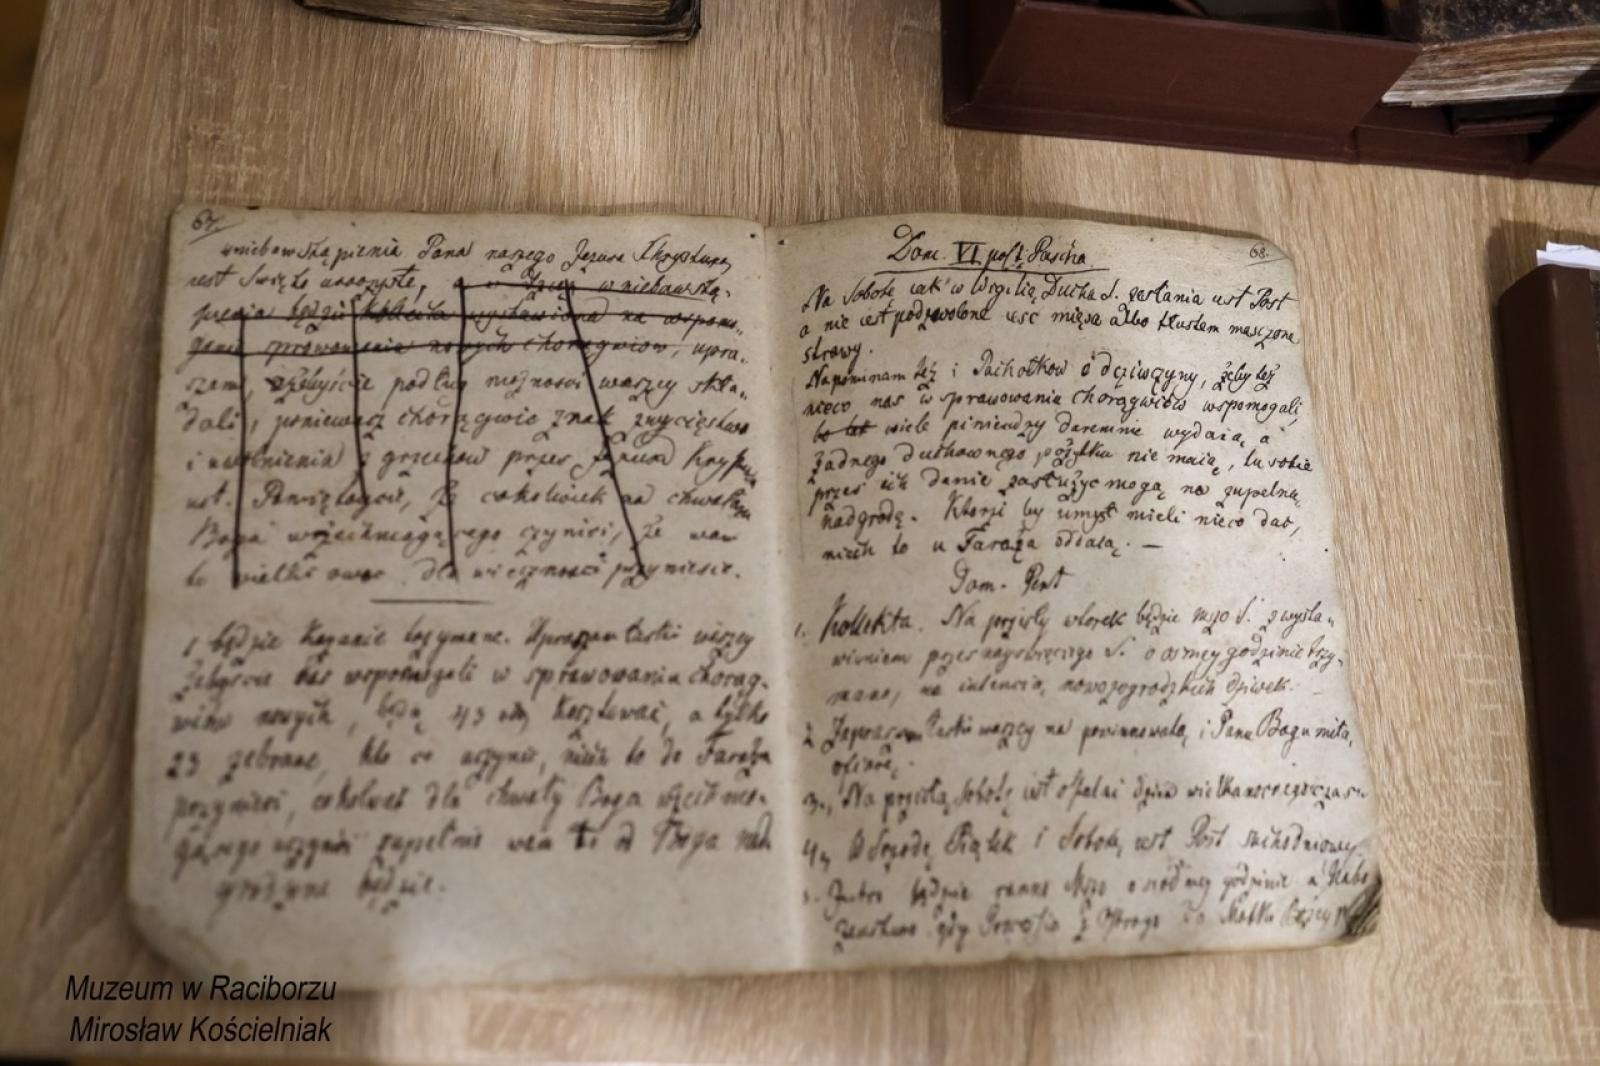 67.
wniebowstąpienia Pana naszego Jezusa Chrystusa,
jest Swięto uroczyste, w niebowstą-
pienia będzie Kollekta wystawiona na wspomo-
żenie sprawowania nowych chorągwiow, upra-
szam, ażebyście podług możności waszey skła-
dali, ponieważ chorągwie znak zwycięstwa
i uwolnienia z grzechow przez Jezusa Krystusa
iest. Pamiętaycie, że cokolwiek na chwałę
Boga wszechmogącego czynici, że wam
to wielki owoc dla wieczności przyniesie.
1 będzie Kazanie trzymane. Upraszam Łaski waszey
żebyscie nas wspomogali w sprawowaniu chorąg-
wiow nowych, będą 43 Kosztować, a tylko
23 zebrane, kto co uczyni, niech to do Faraża
przyniesi, cokolwek dla chwały Boga wszechmo-
gącego uczynici zupełnie wam to od Boga nad-
grodzone będzie.
68.
Dom. VI post Pascha
Na Sobotę iak w Wigilią Ducha S. zesłania iest Post
a nie iest podzwolone iesc mięsa albo tłustem maszczone
strawy.
Napominam też i Pachołkow i dziwczyny, żeby też
nieco nas w sprawowania chorągwiów wspomogali,
bo tak wiele pieniędzy daremnie wydaią, a
żadnego duchownego pożytku nie maią, tu sobie
przes ich danie zasłużyc mogą na zupelną
nadgrodę. Ktorzi by umysł mieli nieco dac,
niech to u Faraża oddaią. —
Dom. Pent
1. Kollekta. Na przisły wtorek będzie mszo S. z wysta-
wieniem przenayswięcego S. o osmey godzinie trzy-
mano, na intencią nowozogrodzkich dziwek.
2 Zapraszam Łaski waszey na powinnowatą i Panu Bogu miłą,
ofiarę.
3., Na przisłą Sobotę iest ostatni dzien wielkanocnego czasu
4, W Srzodę Piątek i Sobotę iest Post suchedniowy
5. Jutro będzie ranno Msza o siodmey godzinie a Nabo
żenstwo gdy Processia z Ostroga do Matki Bożey
Muzeum w Raciborzu
Mirosław Kościelniak